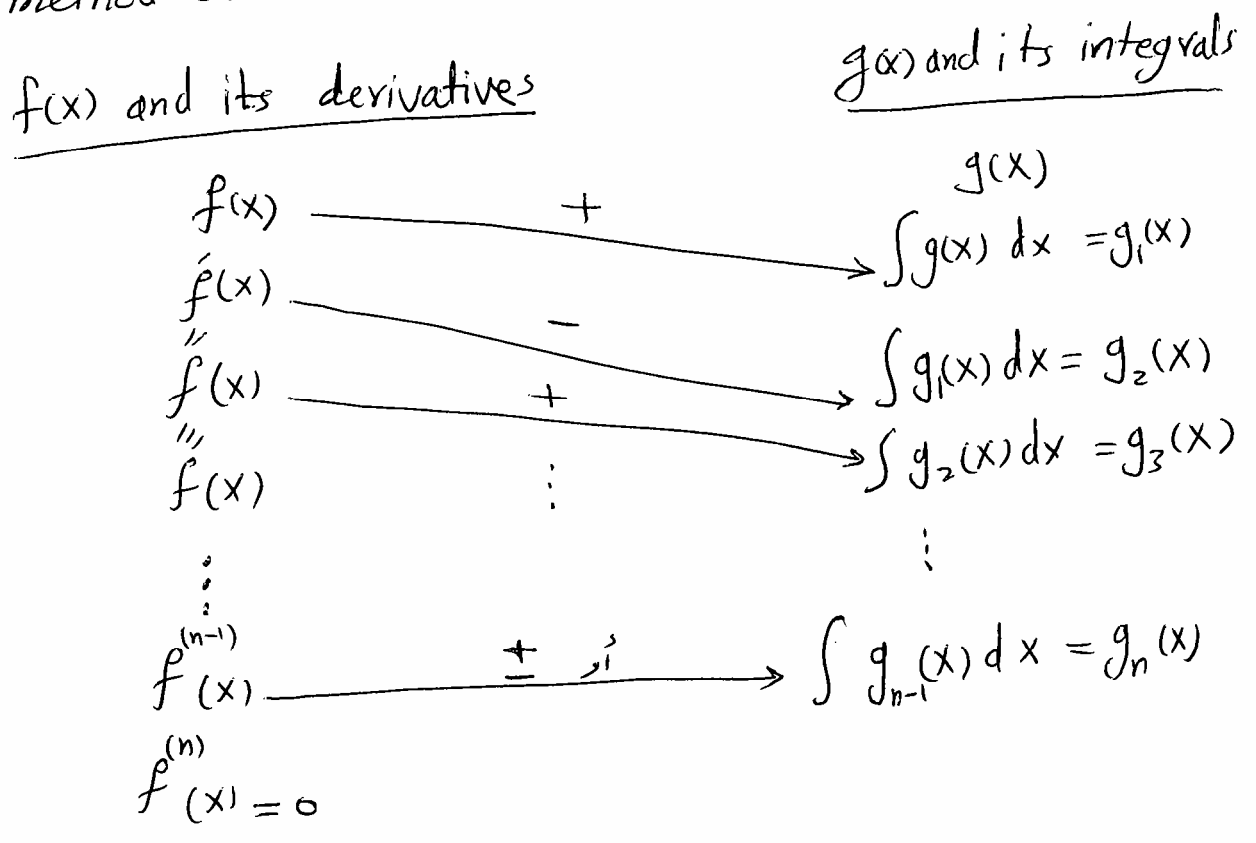 f(x) and its derivatives
g(x) and its integrals
g(x)
f(x) + ∫g(x) dx = g₁(x)
f′(x) − ∫g₁(x) dx = g₂(x)
f″(x) + ∫g₂(x) dx = g₃(x)
f‴(x) ⋮
⋮ ⋮
f⁽ⁿ⁻¹⁾(x) ± أو ∫gₙ₋₁(x) dx = gₙ(x)
f⁽ⁿ⁾(x) = 0